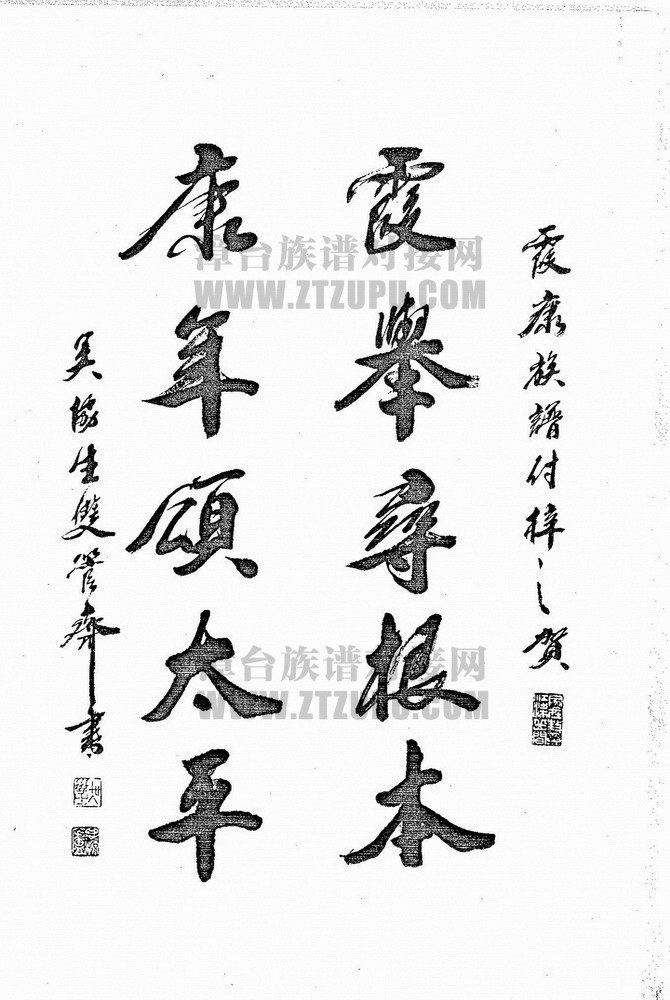 霞康族譜付梓之賀
霞舉尋根本
康年頌太平
吴協生雙管齊書
漳台族谱对接网
WWW.ZTZUPU.COM
漳台族谱对接网
WWW.ZTZUPU.COM